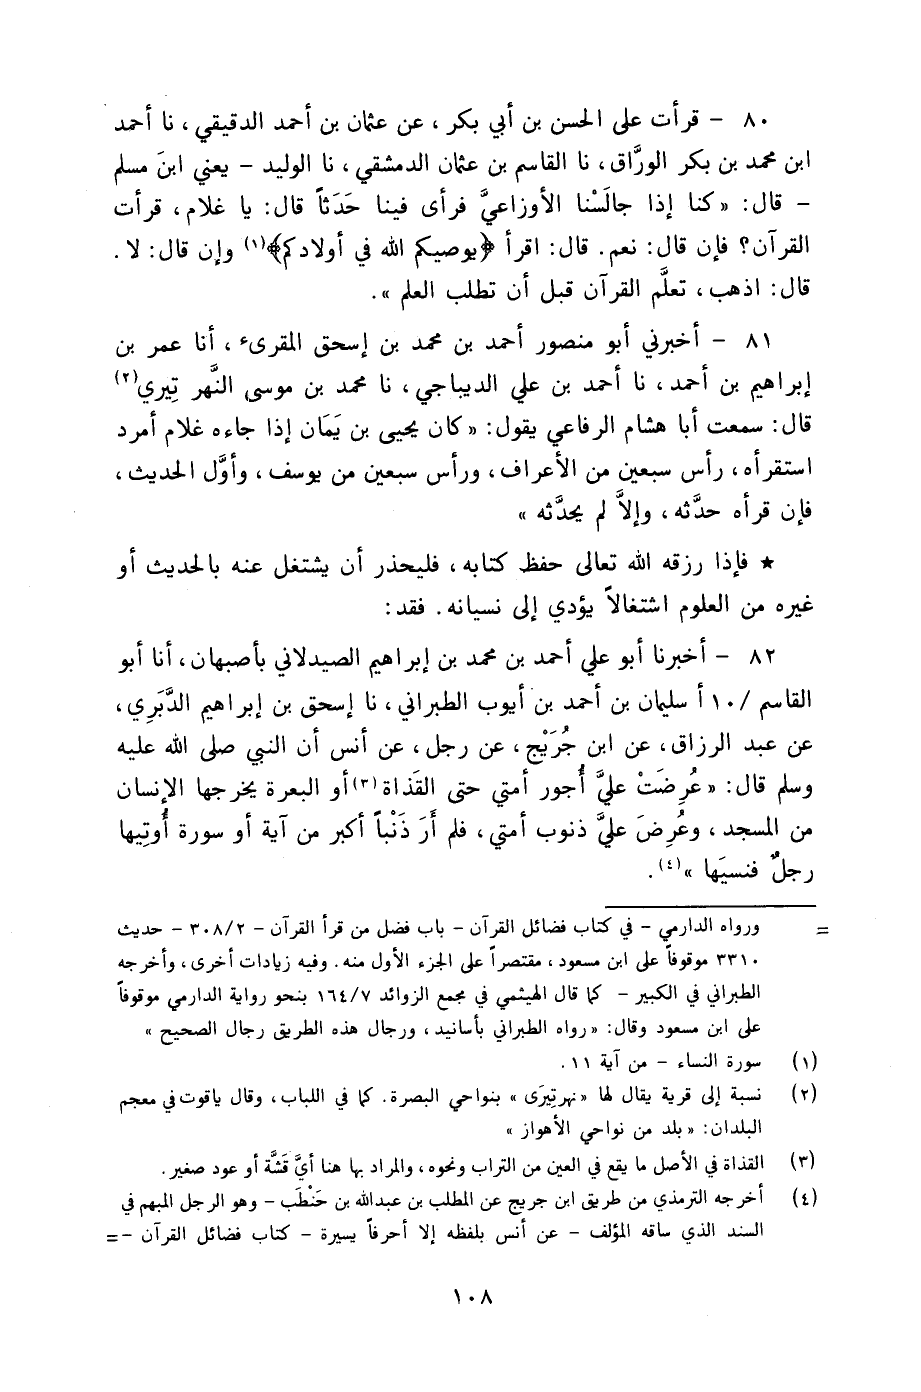 ٨٠ - قرأت على الحسن بن أبي بكر ، عن عثمان بن أحمد الدقيقي ، نا أحمد
ابن محمد بن بكر الورَّاق ، نا القاسم بن عثمان الدمشقي ، نا الوليد - يعني ابنَ مسلم
- قال : « كنا إذا جالَسْنا الأوزاعيَّ فرأى فينا حَدَثاً قال : يا غلام ، قرأت
القرآن ؟ فإن قال : نعم . قال : اقرأ ﴿يوصيكم الله في أولادكم﴾(١) وإن قال : لا .
قال : اذهب ، تعلَّم القرآن قبل أن تطلب العلم » .
٨١ - أخبرني أبو منصور أحمد بن محمد بن إسحق المقرىء ، أنا عمر بن
إبراهيم بن أحمد ، نا أحمد بن علي الديباجي ، نا محمد بن موسى النَّهر تِيري(٢)
قال : سمعت أبا هشام الرفاعي يقول : « كان يحيى بن يَمَان إذا جاءه غلام أمرد
استقرأه ، رأس سبعين من الأعراف ، ورأس سبعين من يوسف ، وأوَّل الحديث ،
فإن قرأه حدَّثه ، وإلاَّ لم يحدِّثه »
★ فإذا رزقه الله تعالى حفظ كتابه ، فليحذر أن يشتغل عنه بالحديث أو
غيره من العلوم اشتغالاً يؤدي إلى نسيانه . فقد :
٨٢ - أخبرنا أبو علي أحمد بن محمد بن إبراهيم الصيدلاني بأصبهان ، أنا أبو
القاسم /١٠ أ سليمان بن أحمد بن أيوب الطبراني ، نا إسحق بن إبراهيم الدَّبَري ،
عن عبد الرزاق ، عن ابن جُرَيْج ، عن رجل ، عن أنس أن النبي صلى الله عليه
وسلم قال : « عُرِضَتْ عليَّ أُجور أمتي حتى القَذاة(٣) أو البعرة يخرجها الإنسان
من المسجد ، وعُرِضَ عليَّ ذنوب أمتي ، فلم أَرَ ذَنْباً أكبر من آية أو سورة أُوتِيها
رجلٌ فنسيَها »(٤) .
= ورواه الدارمي - في كتاب فضائل القرآن - باب فضل من قرأ القرآن - ٣٠٨/٢ - حديث
٣٣١٠ موقوفاً على ابن مسعود ، مقتصراً على الجزء الأول منه . وفيه زيادات أخرى ، وأخرجه
الطبراني في الكبير - كما قال الهيثمي في مجمع الزوائد ١٦٤/٧ بنحو رواية الدارمي موقوفاً
على ابن مسعود وقال : « رواه الطبراني بأسانيد ، ورجال هذه الطريق رجال الصحيح »
(١) سورة النساء - من آية ١١ .
(٢) نسبة إلى قرية يقال لها « نهرتِيرَى » بنواحي البصرة . كما في اللباب ، وقال ياقوت في معجم
البلدان : « بلد من نواحي الأهواز »
(٣) القذاة في الأصل ما يقع في العين من التراب ونحوه ، والمراد بها هنا أيَّ قَشَّة أو عود صغير .
(٤) أخرجه الترمذي من طريق ابن جريج عن المطلب بن عبدالله بن حَنْطَب - وهو الرجل المبهم في
السند الذي ساقه المؤلف - عن أنس بلفظه إلا أحرفاً يسيرة - كتاب فضائل القرآن - =
١٠٨